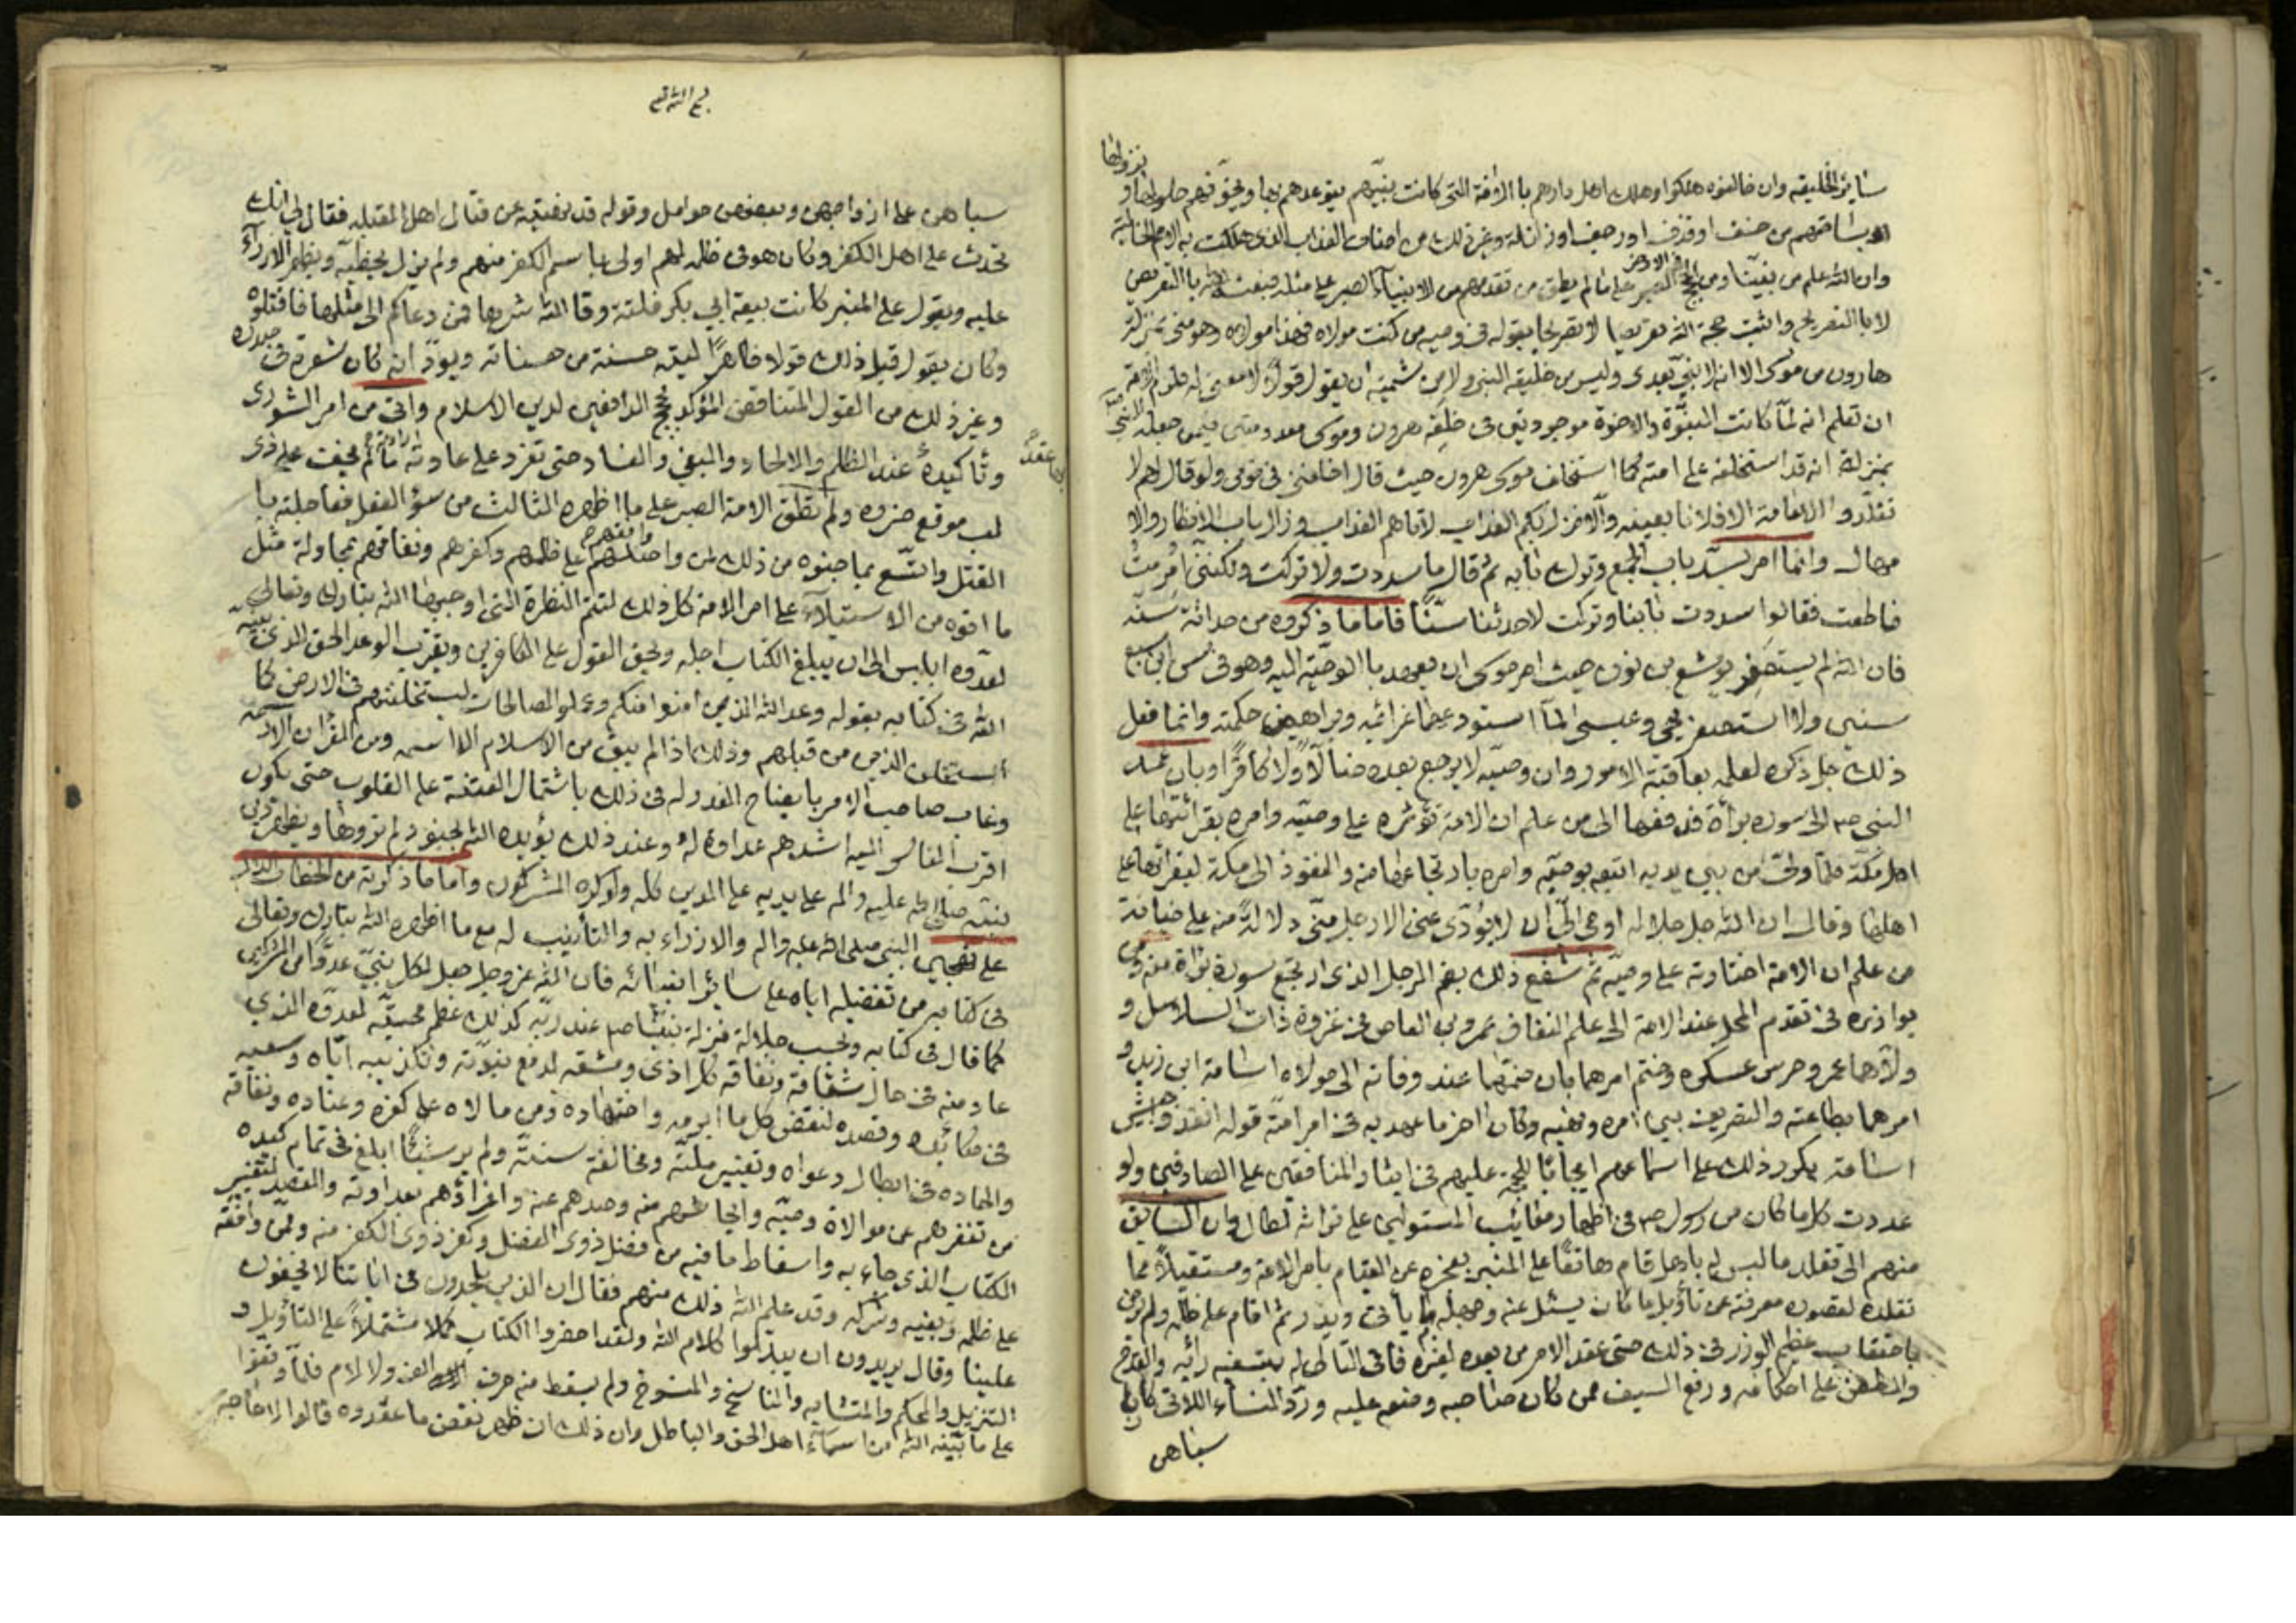 بنزولها
سائر الخليقه وان خالفوه هلكوا وهلك اهل دارهم با الافة التى كانت نبيّهم يتوعدهم بها ويخوّفهم حلولها و
بساحتهم من خسف او قذف او رجف او زلزلة وغير ذلك من اصناف العذاب الذى هلكت به الامم الخالية
وان الله علم من نبيّنا ومن الحجج فى الارض الصبر على ما لم يطق من تقدمهم من الانبيآء الصبر على مثله فبعثه الله با التعريض
لا با التصريح واثبت حجة الله تعريضا لا تصريحا بقوله فى وصيه من كنت مولاه فهذا مولاه وهو منى بمنزلة
هارون من موسى الا انه لا نبىّ بعدى وليس من خليقه النبى ولا من شيمته ان يقول قولا لا معنى له فلزم الامة
ان تعلم انه لمّا كانت النبوّة والاخوة موجودتين فى خلقه هرون ومعدومتين فيمن جعله النبى
بمنزلته انه قد استخلفه على امته كما استخلف موسى هرون حيث قال اخلفنى فى قومى ولو قال لهم لا
تقلّدوا الامامة الا فلانا بعينه والا نزل بكم العذاب لاتاهم العذاب وزال باب الانظار والا
مهال وانما امر بسدّ باب الجميع وترك بابه ثم قال ما سددت ولا تركت ولكننى امرت
فاطعت فقالوا سددت بابنا وتركت لاحدثنا سنّا فاما ما ذكروه من حداثة سنّه
فان الله لم يستصغر يوشع بن نون حيث امر موسى ان يعهد با الوصيّة اليه وهو فى سن ابن سبع
سنين ولا استصغر يحيى وعيسى لمآ استودعهما عزائمه وبراهين حكمته وانما فعل
ذلك جل ذكره لعلمه بعاقبة الامور وان وصيّه لا يرجع بعده ضالّا ولا كافرًا وبان عمد
النبى ص الى سوره براة فدفعها الى من علم ان الامة تؤثره على وصيّه وامره بقرائتها على
اهل مكّة فلما ولىّ من بين يديه اتبعه بوصيّه وامره بارتجاعها منه والنفوذ الى مكة ليقرأها على
اهلها وقال ان الله جل جلاله اوحى الىّ ان لا يؤدى عنى الا رجل منّى دلالةً منه على خيانة
من علم ان الامة اختارته على وصيّه ثم شفع ذلك بضم الرجل الذى ارتجع سورة براة منه ومن
يوازره فى تقدم المحل عند الامة الى علم النفاق عمرو بن العاص فى غزوة ذات السلاسل و
ولاهما عمرو حرس عسكره وختم امرهما بان ضمّهما عند وفاته الى مولاه اسامة ابن زيد و
امرهما بطاعته والتصريف بين امره ونهيه وكان اخر ما عهد به فى امر امّته قوله انفذوا جيش
اسامة يكرر ذلك على اسماعهم ايجابًا للحجّة عليهم فى ايثار المنافقين على الصادقين ولو
عددت كل ما كان من رسول ص فى اظهار معائب المستولين على تراثه لطال وان السابق
منهم الى تقلد ما ليس له باهل قام هاتفًا على المنبر بعجزه عن القيام بامر الامة ومستقيلاً مما
تقلده لقصور معرفته عن تأويل ما كان يسئل عنه وجهله بما يأتى ويذر ثم اقام على ظلمه ولم يرض
باحتقاب عظيم الوزر فى ذلك حتى عقد الامر من بعده لغيره فاتى التالى له بتسفيه رأيه والقدح
والطعن على احكامه ورفع السيف عمن كان صاحبه وضعه عليه وردّ النساء اللاتى كان
سباهن
سباهن على ازواجهن وبعضهن حوامل وقوله قد نهيته عن قتال اهل القبله فقال لى انك
تحدث على اهل الكفر وكان هو فى ظلمه لهم اولى باسم الكفر منهم ولم يزل يخطيه ويظهر الازراء
عليه ويقول على المنبر كانت بيعة ابى بكر فلتة وقا الله شرها فمن دعاكم الى مثلها فاقتلوه
وكان يقول قبل ذلك قولا ظاهرًا ليته حسنة من حسناته ويودّ انه كان شعرة فى صدره
وغير ذلك من القول المتناقض المؤكد لحجج الدافعين لدين الاسلام واتى من امر الشورى
وتأكيدهٔ عقدًا بها عند الظلم والالحاد والبغى والفساد حتى تقرر على ارادته ما لم يخف على ذى
لب موقع ضرره ولم تطق الامة الصبر على ما اظهره الثالث من سوء الفعل فعاجلته با
القتل واتسع بما جنوه من ذلك لمن وافقهم على ظلمهم وكفرهم ونفاقهم محاولة مثل
ما اتوه من الاستيلآء على امر الامة كل ذلك لتتم النظرة التى اوجبها الله تبارك وتعالى
لعدوه ابليس الى ان يبلغ الكتاب اجله ويحق القول على الكافرين ويقترب الوعد الحق الذى بينه
الله فى كتابه بقوله وعد الله الذين امنوا منكم وعملوا الصالحات ليستخلفنهم فى الارض كما
استخلف الذين من قبلهم وذلك اذا لم يبق من الاسلام الا اسمه ومن القرآن الا رسمه
وغاب صاحب الامر بايضاح الغدر له فى ذلك باشتمال الفتنة على القلوب حتى يكون
اقرب الناس اليه اشدهم عداوة له وعند ذلك يؤيده الله بجنود لم تروها ويظهر دين
نبيّه صلى الله عليه واله على يديه على الدين كله ولو كره المشركون واما ما ذكرته من الخطاب الدال
على تهجين النبى صلى الله عليه واله والازراء به والتأنيب له مع ما اظهره الله تبارك وتعالى
فى كتابه من تفضيله اياه على سائر انبيائه فان الله عز وجل جعل لكل نبىّ عدوًا من المشركين
كما قال فى كتابه وبحسب جلالة منزلة نبيّنا ص عند ربّه كذلك عظم محنته لعدوّه الذى
عاد منه فى حال شقاقه ونفاقه كل اذى ومشقه لدفع نبوّته وتكذيبه ايّاه وسعيه
فى مكارهه وقصده لنقض كل ما ابرمه واجتهاده ومن مالاه على كفره وعناده ونفاقه
والحاده فى ابطال دعواه وتغيير ملّته ومخالفة سنته ولم ير شيئًا ابلغ فى تمام كيده
من تنفيرهم عن موالاة وصيّه وايحاشهم منه وصدهم عنه واغرائهم بعداوته والقصد لتغيير
الكتاب الذى جاء به واسقاط ما فيه من فضل ذوى الفضل وكفر ذوى الكفر منه وممن وافقه
على ظلمه وبغيه وشركه وقد علم الله ذلك منهم فقال ان الذين يلحدون فى اياتنا لا يخفون
علينا وقال يريدون ان يبدلوا كلام الله ولقد احضروا الكتاب كملا مشتملاً على التأويل و
التنزيل والمحكم والمتشابه والناسخ والمنسوخ ولم يسقط منه حرف الف ولا لام فلما وقفوا
على ما بيّنه الله من اسمآء اهل الحق والباطل وان ذلك ان ظهر نقض ما عقدوه قالوا لا حاجة